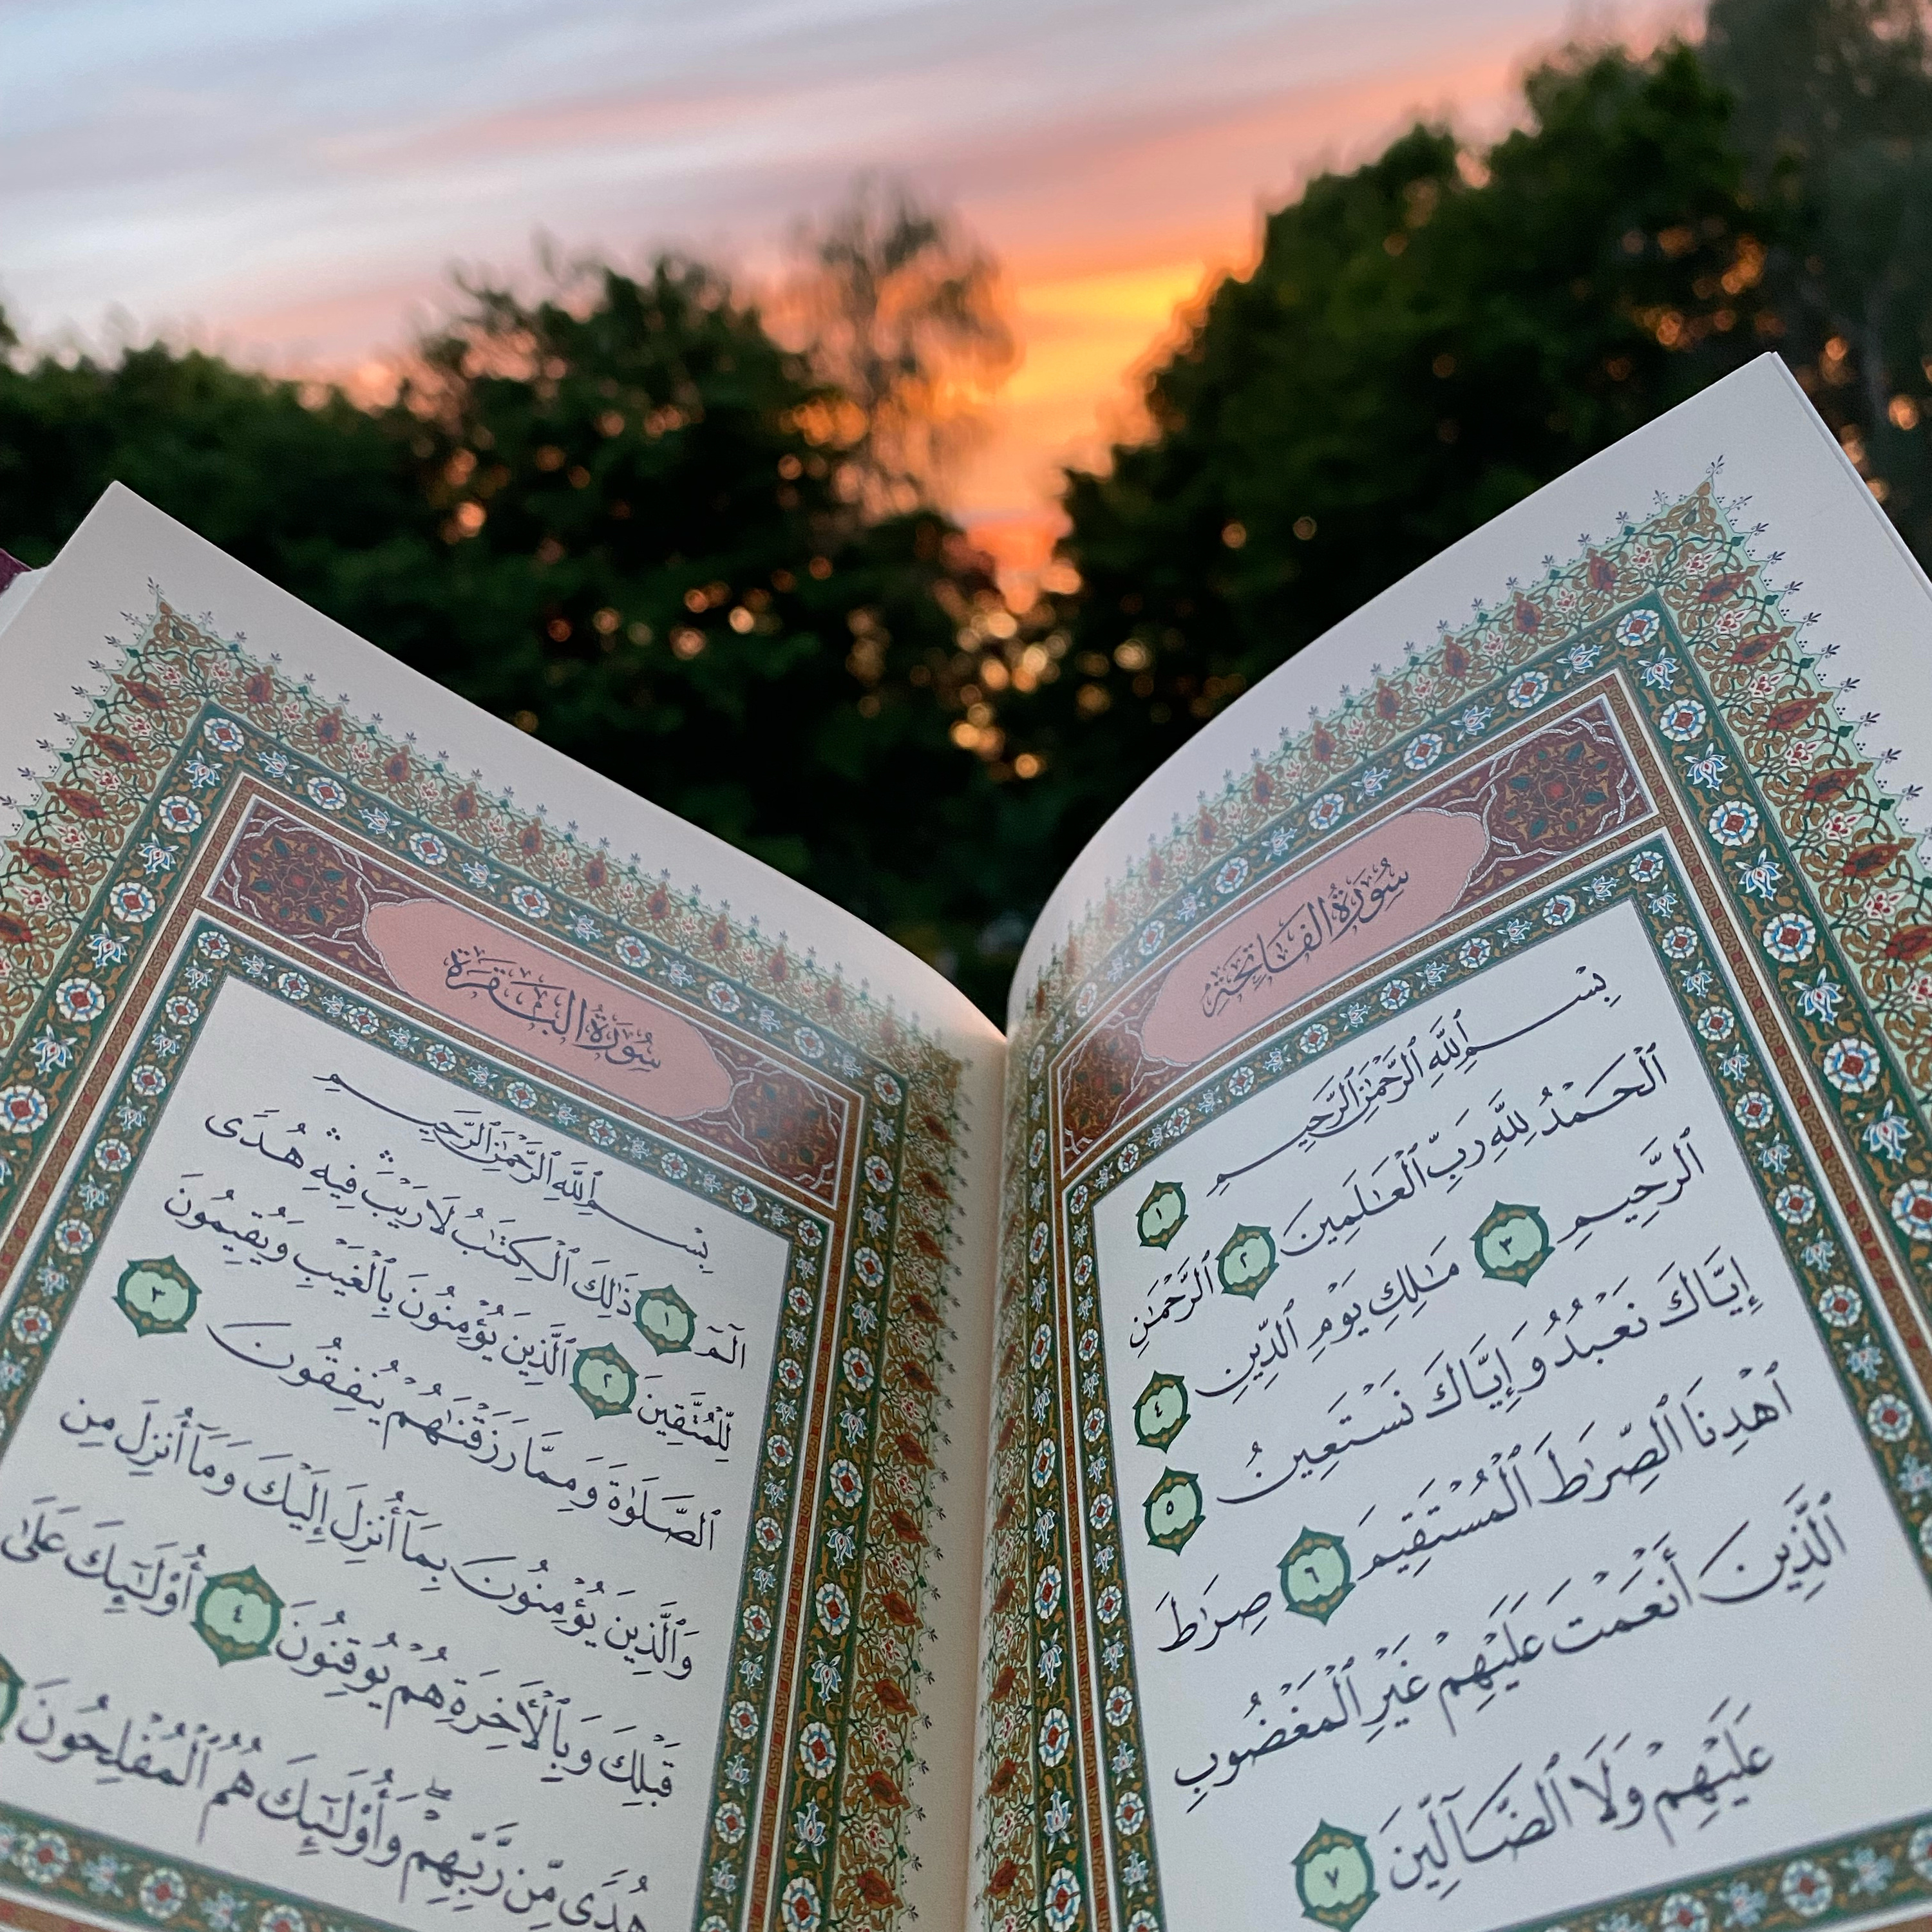 سُورَةُ الفَاتِحَةِ
بِسْمِ ٱللَّهِ ٱلرَّحْمَٰنِ ٱلرَّحِيمِ ١
ٱلْحَمْدُ لِلَّهِ رَبِّ ٱلْعَٰلَمِينَ ٢ ٱلرَّحْمَٰنِ
ٱلرَّحِيمِ ٣ مَٰلِكِ يَوْمِ ٱلدِّينِ ٤
إِيَّاكَ نَعْبُدُ وَإِيَّاكَ نَسْتَعِينُ ٥
ٱهْدِنَا ٱلصِّرَٰطَ ٱلْمُسْتَقِيمَ ٦ صِرَٰطَ
ٱلَّذِينَ أَنْعَمْتَ عَلَيْهِمْ غَيْرِ ٱلْمَغْضُوبِ
عَلَيْهِمْ وَلَا ٱلضَّآلِّينَ ٧
سُورَةُ البَقَرَةِ
بِسْمِ ٱللَّهِ ٱلرَّحْمَٰنِ ٱلرَّحِيمِ
الٓمٓ ١ ذَٰلِكَ ٱلْكِتَٰبُ لَا رَيْبَۛ فِيهِۛ هُدًى
لِّلْمُتَّقِينَ ٢ ٱلَّذِينَ يُؤْمِنُونَ بِٱلْغَيْبِ وَيُقِيمُونَ
ٱلصَّلَوٰةَ وَمِمَّا رَزَقْنَٰهُمْ يُنفِقُونَ ٣
وَٱلَّذِينَ يُؤْمِنُونَ بِمَآ أُنزِلَ إِلَيْكَ وَمَآ أُنزِلَ مِن
قَبْلِكَ وَبِٱلْأٓخِرَةِ هُمْ يُوقِنُونَ ٤ أُو۟لَٰٓئِكَ عَلَىٰ
هُدًى مِّن رَّبِّهِمْۖ وَأُو۟لَٰٓئِكَ هُمُ ٱلْمُفْلِحُونَ